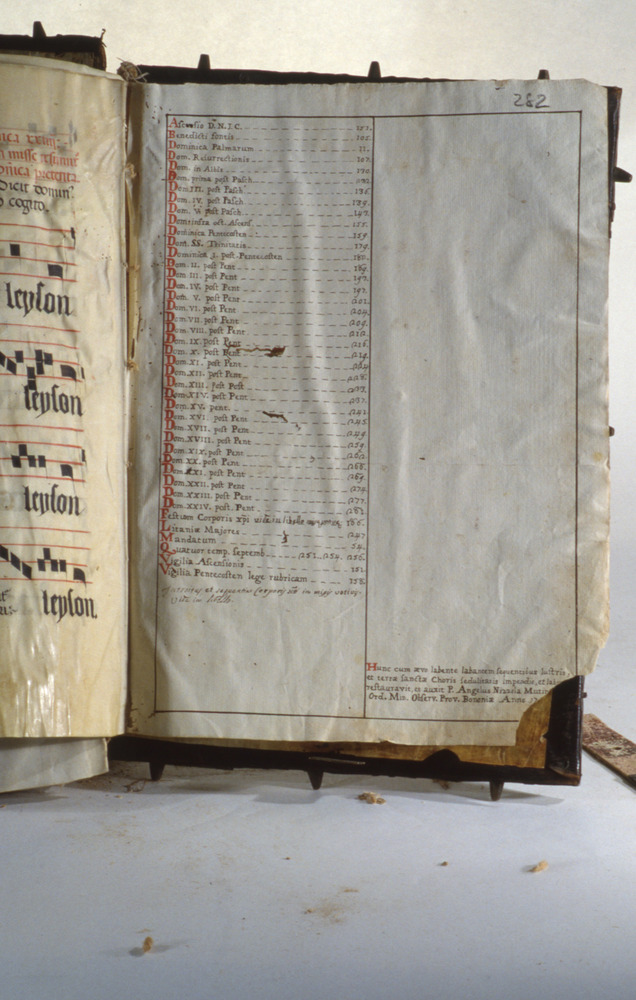 Dicit domin⁹
cogito.
leyson
leyson
leyson
leyson.
282
Ascensio D. N. I. C. 151.
Benedicti fontis 105.
Dominica Palmarum 11.
Dom. Resurrectionis 107.
Dom. in Albis 130.
Dom. prima post Pasch
Dom III. post Pasch 136.
Dom. IV. post Pasch 139.
Dom. VI post Pasch 147.
Dom infra oct. Ascens. 155.
Dominica Pentecosten 159.
Dom. SS. Trinitatis 179.
Dominica I. post. Pentecosten 181.
Dom. II. post Pent 189.
Dom III. post Pent 193.
Dom. IV. post Pent 197.
Dom. V. post Pent 201.
Dom. VI. post Pent 204.
Dom. VII. post Pent 209.
Dom. VIII. post Pent 212.
Dom. IX. post Pent 216.
Dom. X. post Pent 219.
Dom. XI. post Pent 224
Dom. XII. post Pent 228.
Dom. XIII. post Post 233.
Dom. XIV. post Pent 237.
Dom. XV. pent. 241.
Dom. XVI. post Pent 245.
Dom. XVII. post Pent 249.
Dom. XVIII. post Pent 259.
Dom. XIX. post Pent 262.
Dom. XX. post Pent 266.
Dom. XXI. post Pent 269.
Dom. XXII. post Pent 274.
Dom. XXIII. post Pent 277.
Dom. XXIV. post. Pent 281.
Festiam Corporis xp̄i vide in libello 186.
Litaniæ Majores 247
Mandatum 54.
Quatuor temp. septemb. 251. 254. 256.
Vigilia Ascensionis 151.
Vigilia Pentecosten lege rubricam 158.
Hunc cum ævo labente labantem sequentibus lustris
et terræ sanctæ Choris sedulitatis impendio, et
restauravit, et auxit P. Angelus
Ord. Min. Observ. Prov. Bononiæ Anno